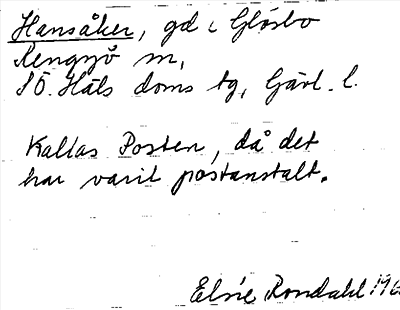 Hansåker, gd i Glösbo
Rengsjö m,
SÖ. Häls doms tg, Gävl. l.
Kallas Posten, då det
har varit postanstalt.
Elsie Rondahl 196